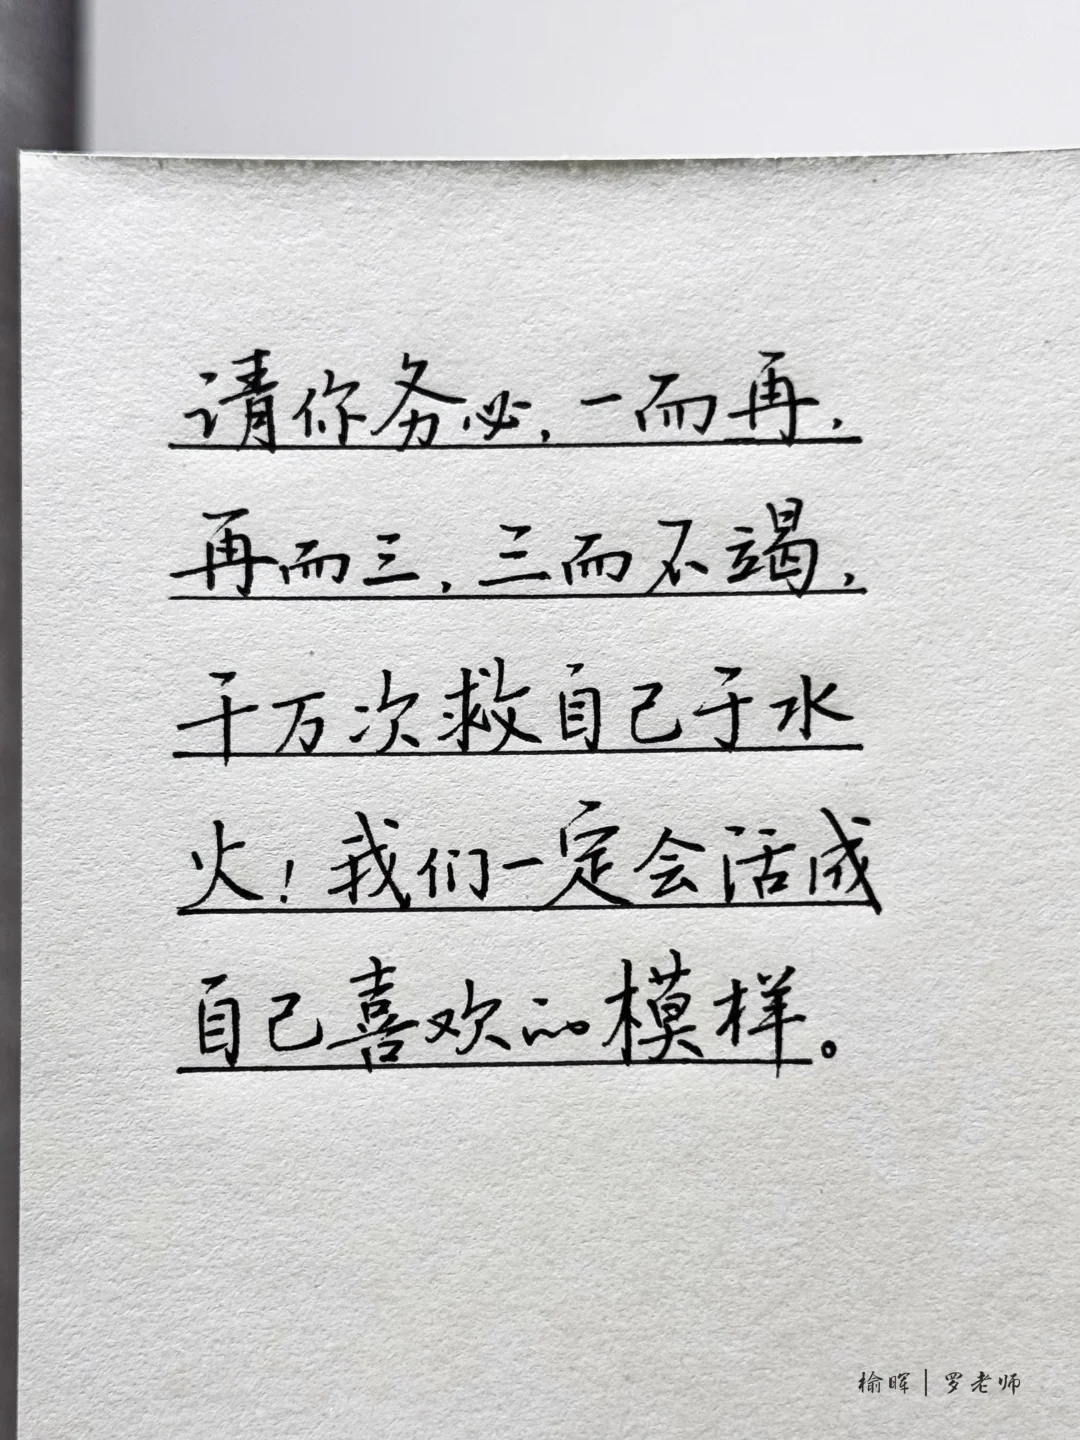 请你务必,一而再,
再而三,三而不竭,
千万次救自己于水
火!我们一定会活成
自己喜欢的模样。
榆晖|罗老师